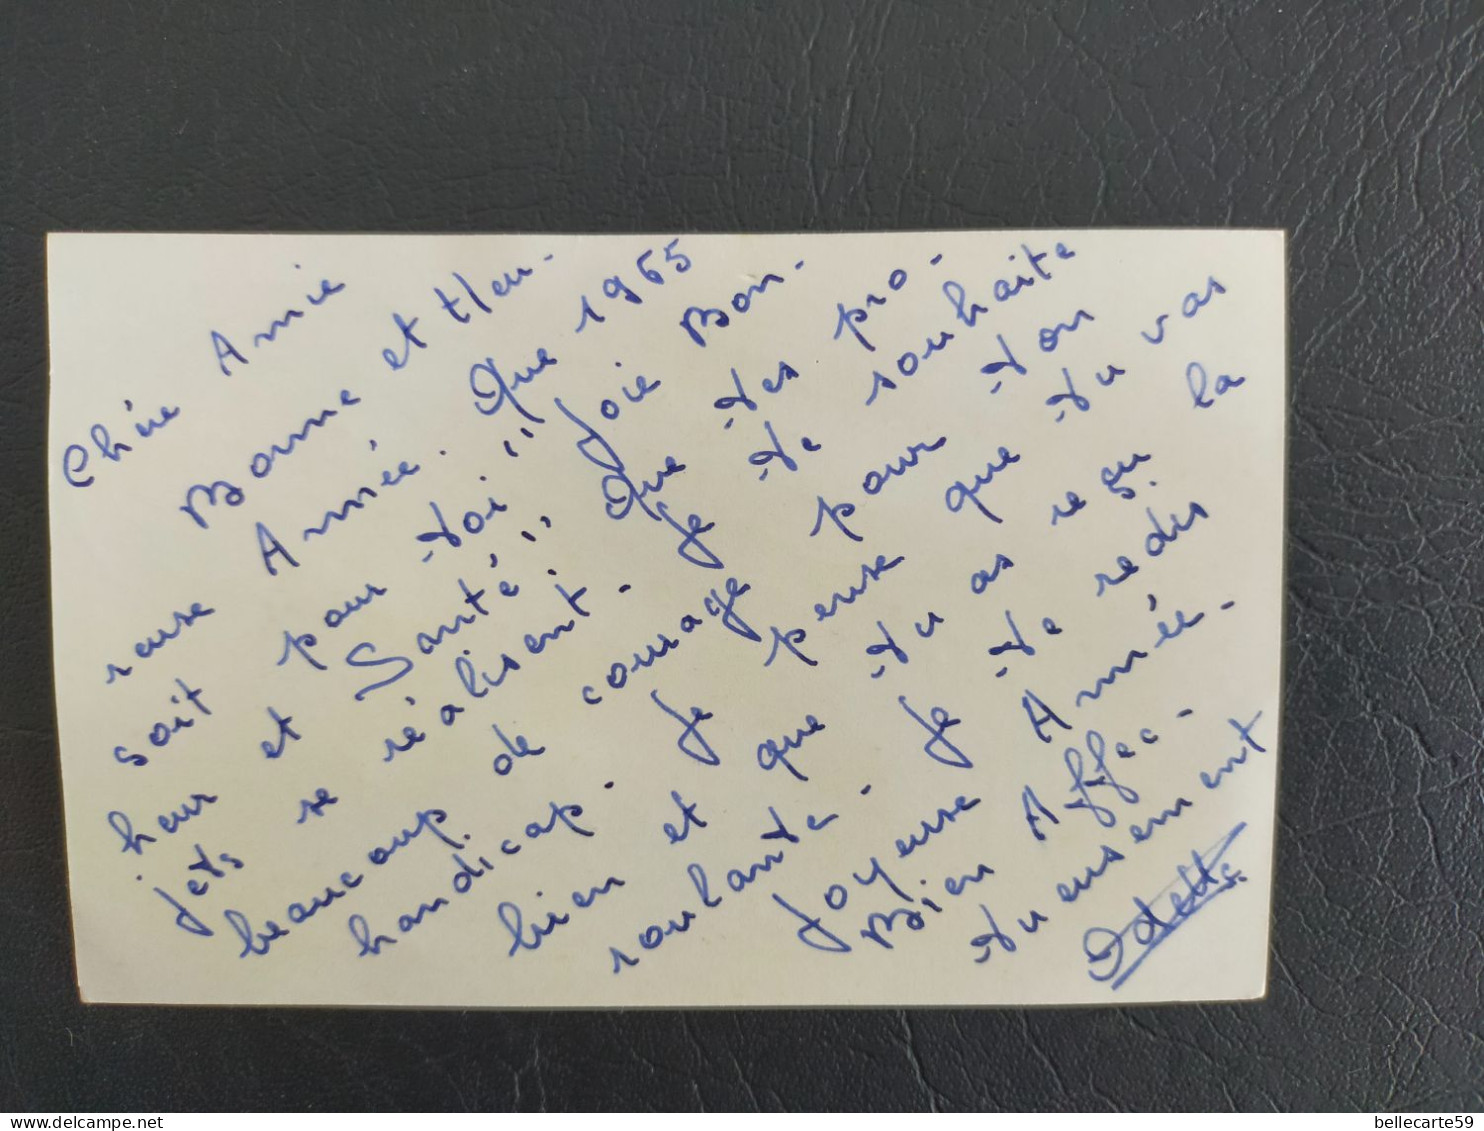 Chère Amie
Bonne et Heu-
reuse Année. Que 1965
soit pour toi "Joie Bon-
heur et Santé". Que tes pro-
jets se réalisent. Je te souhaite
beaucoup de courage pour ton
handicap. Je pense que tu vas
bien et que tu as reçu la
roulante. Je te redis
Joyeuse Année.
Bien Affec-
tueusement
Odette
delcampe.net
bellecarte59